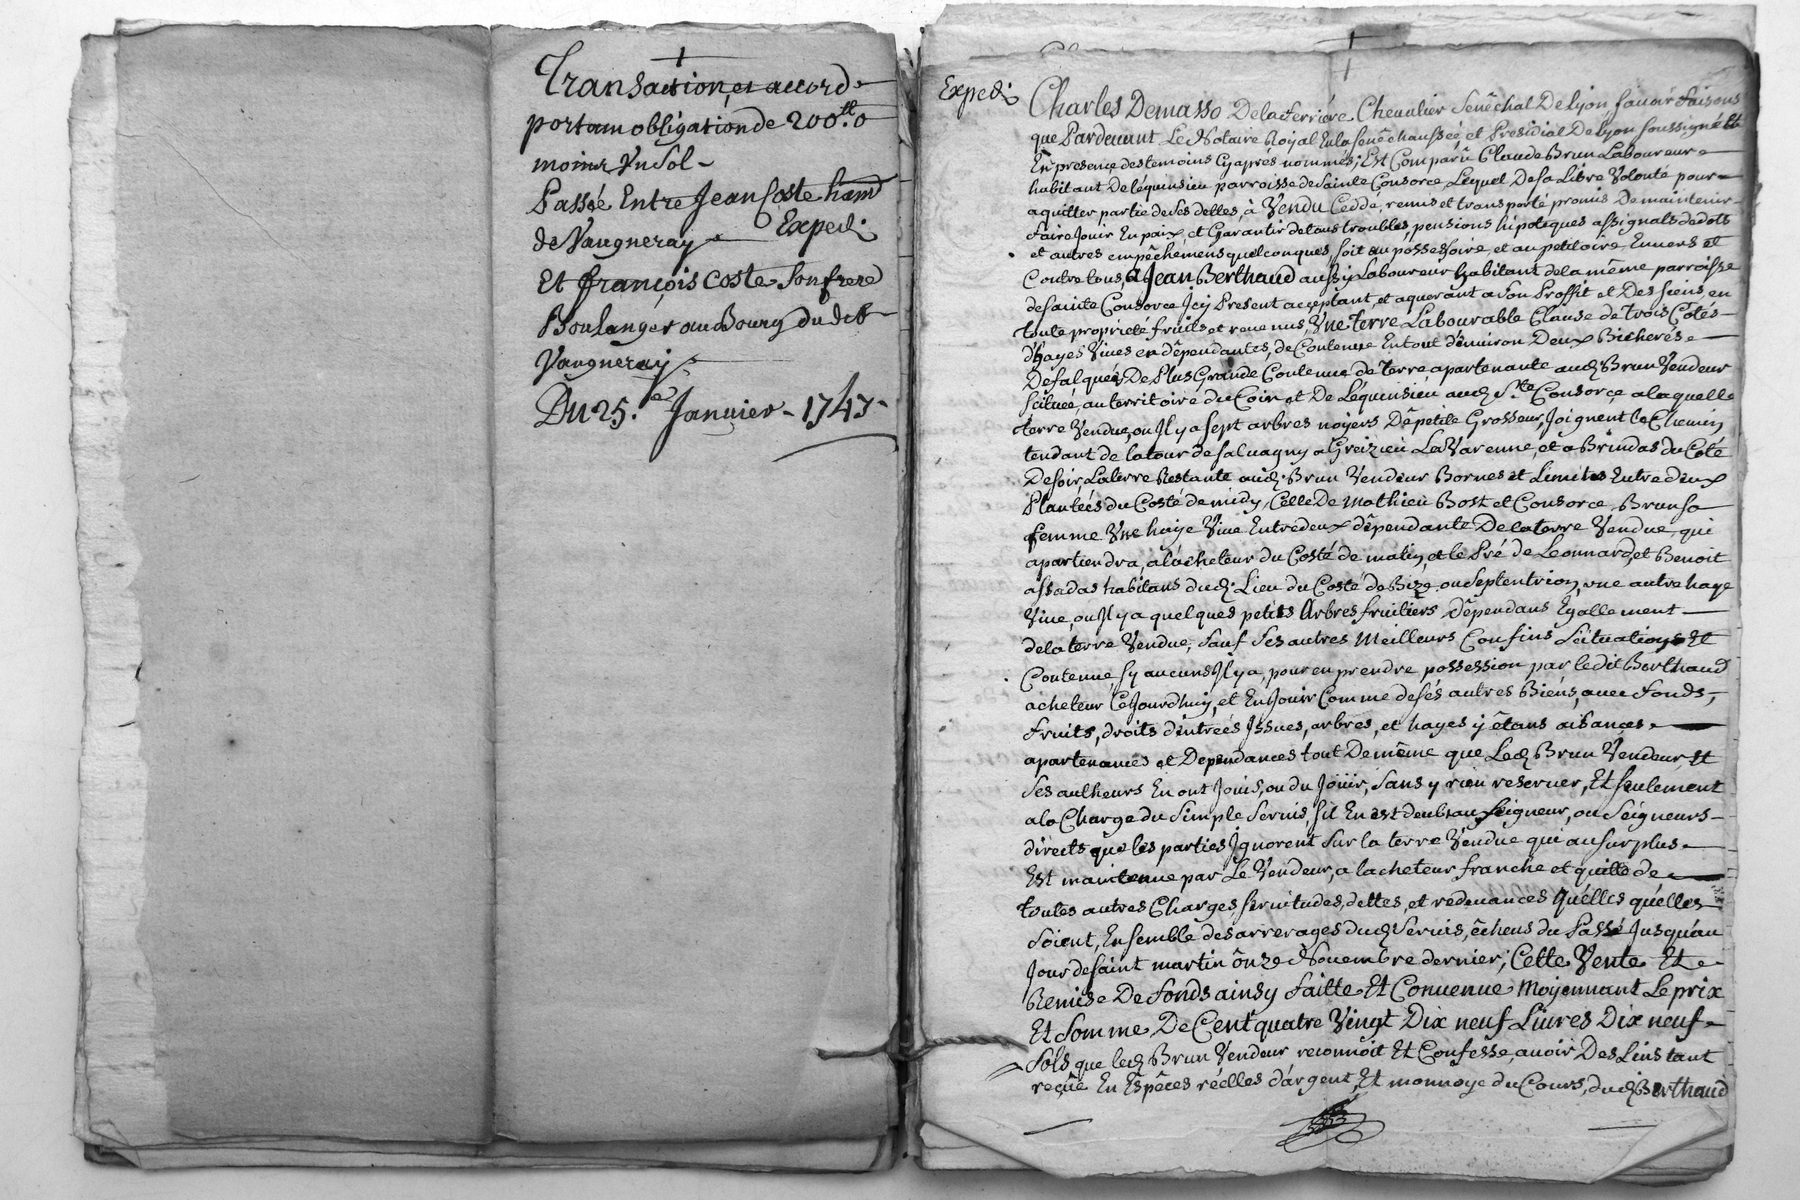 Transaction, et accord
portant obligation de 200.tt o
moins Un Sol
Passé Entre Jean Coste hant
de Vaugneray Exped.
Et françois Coste Son frere
Boulanger au Bourg dudt
Vaugneray
Du 25.e Janvier - 1747-
Exped.
Charles Demasso De la ferriére Chevalier Senêchal De Lyon Savoir faisons
que Pardevant Le Notaire Royal En la Senêchaussée, et Presidial De Lyon soussigné Et
En presence des temoins Cy apres nommés; Est Comparû Claude Brun Laboureur
habitant De léquinsieu parroisse de sainte Consorce Lequel De sa Libre Volonté pour
aquitter partie de Ses dettes, à Vendu Cedde, remis et transporté promis De maintenir
faire Jouir En paix, et Garantir de tous troubles, pensions hipotiques assignats de dots
et autres empêchemens quelconques, soit au possessoire, et au petitoire Envers et
Contre tous, à Jean Berthaud aussy Laboureur habitant de la même parroisse
de sainte Consorce Icy Present acceptant, et aquerant a son Proffit et Des siens, en
toute proprieté fruits et revenus, Une terre Labourable Clause de trois Côtés
d'hayes Vives en dêpendantes, de Contenue En tout d'environ Deux Bicherés
Défalquée De Plus Grande Contenue de terre apartenante aud. Brun Vendeur
scituée, au territoire du Coin et De Léquinsieu aud. Ste Consorce a laquelle
terre Vendue, ou Il y a sept arbres noyers De petite Grosseur, Joignent le Chemin
tendant de la tour de salvagny a Greizieu La Varenne, et a Brindas du Coté
De soir, La terre Restante aud. Brun Vendeur Bornes et Limites Entre deux
Plantées du Costé de midy, Celle De Mathieu Bost et Consorce Brun sa
femme Une haye Vive Entredeux dêpendante De la terre Vendue, qui
apartiendra, a l'acheteur du Costé de matin, et le Pré de Leonnard, et Benoit
assadas habitans dud. Lieu du Costé de Bize ou Septentrion, une autre haye
Vive, ou Il y a quelques petits Arbres fruitiers dêpendans Egallement
de la terre Vendue, Sauf Ses autres Meilleurs Confins Scituations Et
Contenue, sy aucuns Il y a, pour en prendre possession par ledit Berthaud
acheteur Cejourd'huy, et En Jouir Comme de sés autres Biens, avec fonds,
fruits, droits d'intrées Issues, arbres, et hayes y êtans aisances
apartenances et Dependances tout De même que Led. Brun Vendeur, Et
Ses autheurs En ont Jouis, ou du Jouir, Sans y rien reserver, Et seulement
a la Charge du Simple Servis, sil En est deub au Seigneur, ou Séigneurs
directs que les parties Ignorent Sur la terre Vendue qui au surplus
Est maintenue par Le Vendeur, a lacheteur franche et quitte de
toutes autres Charges, servitudes, dettes, et redevances quélles quélles
Soient, Ensemble des arrerages dud. Servis, êcheus du Passé Jusqu'au
Jour de saint martin ônze Novembre dernier; Cette Vente Et
Remise De fonds ainsy faitte Et Convenue Moyennant Le prix
Et Somme De Cent quatre Vingt Dix neuf Livres Dix neuf
Sols que led. Brun Vendeur reconnoit Et Confesse, avoir Des Linstant
reçûe En Espêces réelles d'argent, Et monnoye du Cours, dud. Berthaud